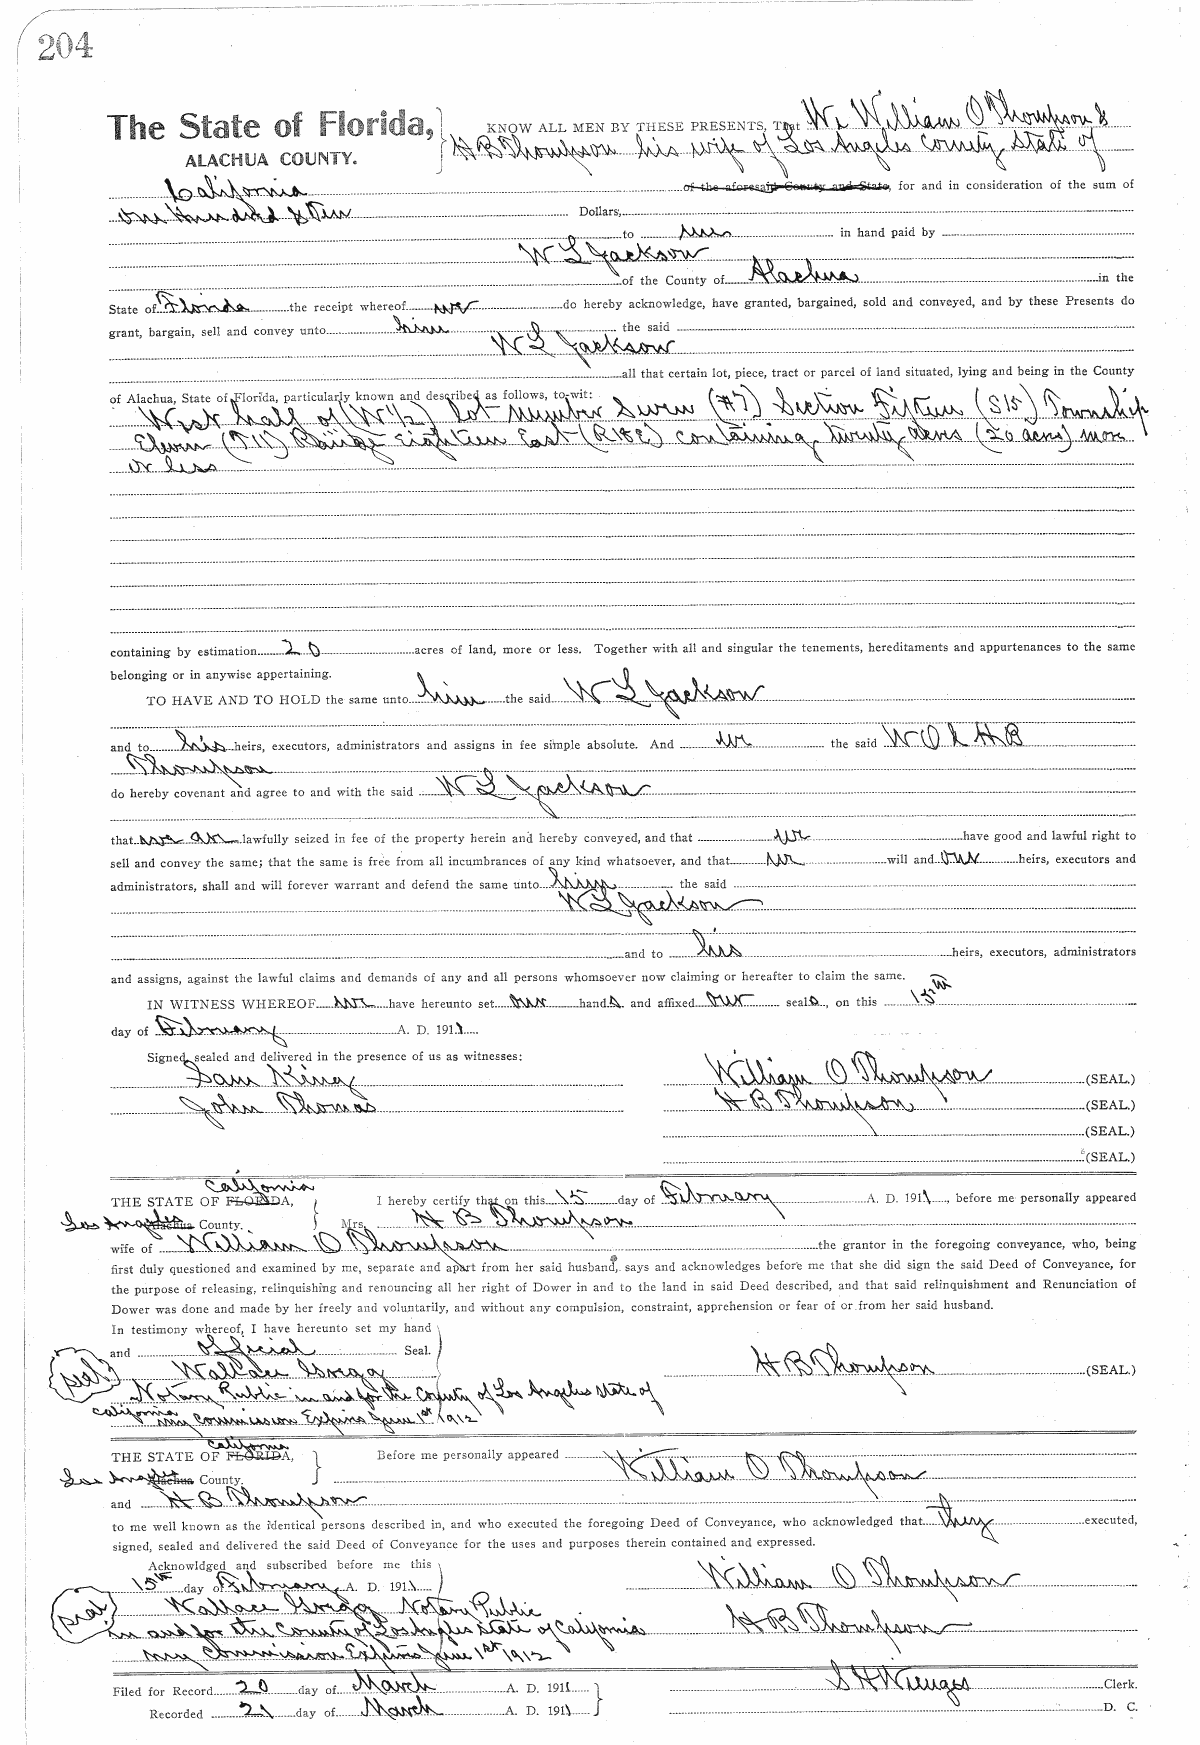 204
The State of Florida, KNOW ALL MEN BY THESE PRESENTS, That We William O Thompson &
ALACHUA COUNTY. H B Thompson his wife of Los Angeles County State of
California of the aforesaid County and State, for and in consideration of the sum of
One Hundred & Ten Dollars,
to us in hand paid by
W L Jackson
of the County of Alachua in the
State of Florida the receipt whereof we do hereby acknowledge, have granted, bargained, sold and conveyed, and by these Presents do
grant, bargain, sell and convey unto him the said
W L Jackson
all that certain lot, piece, tract or parcel of land situated, lying and being in the County
of Alachua, State of Florida, particularly known and described as follows, to-wit:
West half of (W 1/2) lot number Seven (#7) Section Fifteen (S15) Township
Eleven (T11) Range Eighteen East (R18E) containing twenty acres (20 acres) more
or less
containing by estimation 20 acres of land, more or less. Together with all and singular the tenements, hereditaments and appurtenances to the same
belonging or in anywise appertaining.
TO HAVE AND TO HOLD the same unto him the said W L Jackson
and to his heirs, executors, administrators and assigns in fee simple absolute. And we the said W O & H B
Thompson
do hereby covenant and agree to and with the said W L Jackson
that we are lawfully seized in fee of the property herein and hereby conveyed, and that we have good and lawful right to
sell and convey the same; that the same is free from all incumbrances of any kind whatsoever, and that we will and our heirs, executors and
administrators, shall and will forever warrant and defend the same unto him the said
W L Jackson
and to his heirs, executors, administrators
and assigns, against the lawful claims and demands of any and all persons whomsoever now claiming or hereafter to claim the same.
IN WITNESS WHEREOF we have hereunto set our hands and affixed our seals, on this 15th
day of February A. D. 1911
Signed, sealed and delivered in the presence of us as witnesses:
Sam King William O Thompson (SEAL.)
John Thomas H B Thompson (SEAL.)
(SEAL.)
(SEAL.)
California
THE STATE OF FLORIDA, I hereby certify that on this 15 day of February A. D. 1911, before me personally appeared
Los Angeles Alachua County. Mrs. H B Thompson
wife of William O Thompson the grantor in the foregoing conveyance, who, being
first duly questioned and examined by me, separate and apart from her said husband, says and acknowledges before me that she did sign the said Deed of Conveyance, for
the purpose of releasing, relinquishing and renouncing all her right of Dower in and to the land in said Deed described, and that said relinquishment and Renunciation of
Dower was done and made by her freely and voluntarily, and without any compulsion, constraint, apprehension or fear of or from her said husband.
In testimony whereof, I have hereunto set my hand
and official Seal.
(seal) Wallace Gregg H B Thompson (SEAL)
Notary Public in and for the County of Los Angeles State of
California
My Commission Expires June 1st 1912
California
THE STATE OF FLORIDA, Before me personally appeared William O Thompson
Los Angeles Alachua County.
and H B Thompson
to me well known as the identical persons described in, and who executed the foregoing Deed of Conveyance, who acknowledged that they executed,
signed, sealed and delivered the said Deed of Conveyance for the uses and purposes therein contained and expressed.
Acknowldged and subscribed before me this
15th day of February A. D. 1911 William O Thompson
(seal) Wallace Gregg Notary Public
in and for the County of Los Angeles State of California H B Thompson
My Commission Expires June 1st 1912
Filed for Record 20 day of March A. D. 1911 S H Wienges Clerk.
Recorded 21 day of March A. D. 1911 D. C.